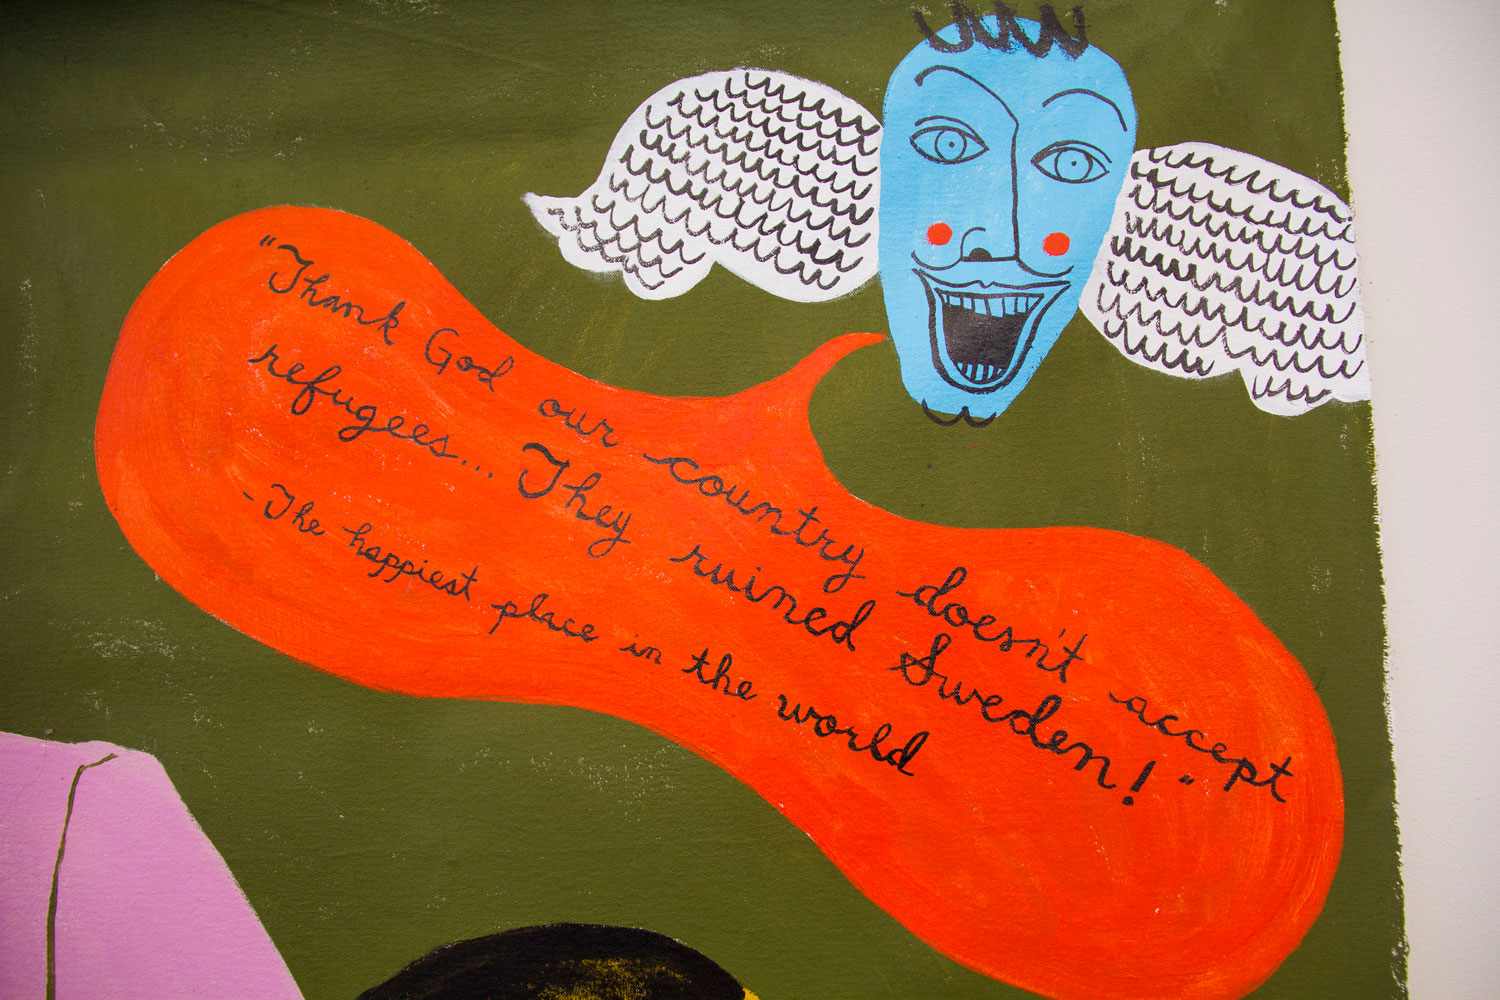 "Thank God our country doesn't accept
refugees... They ruined Sweden!"
- The happiest place in the world